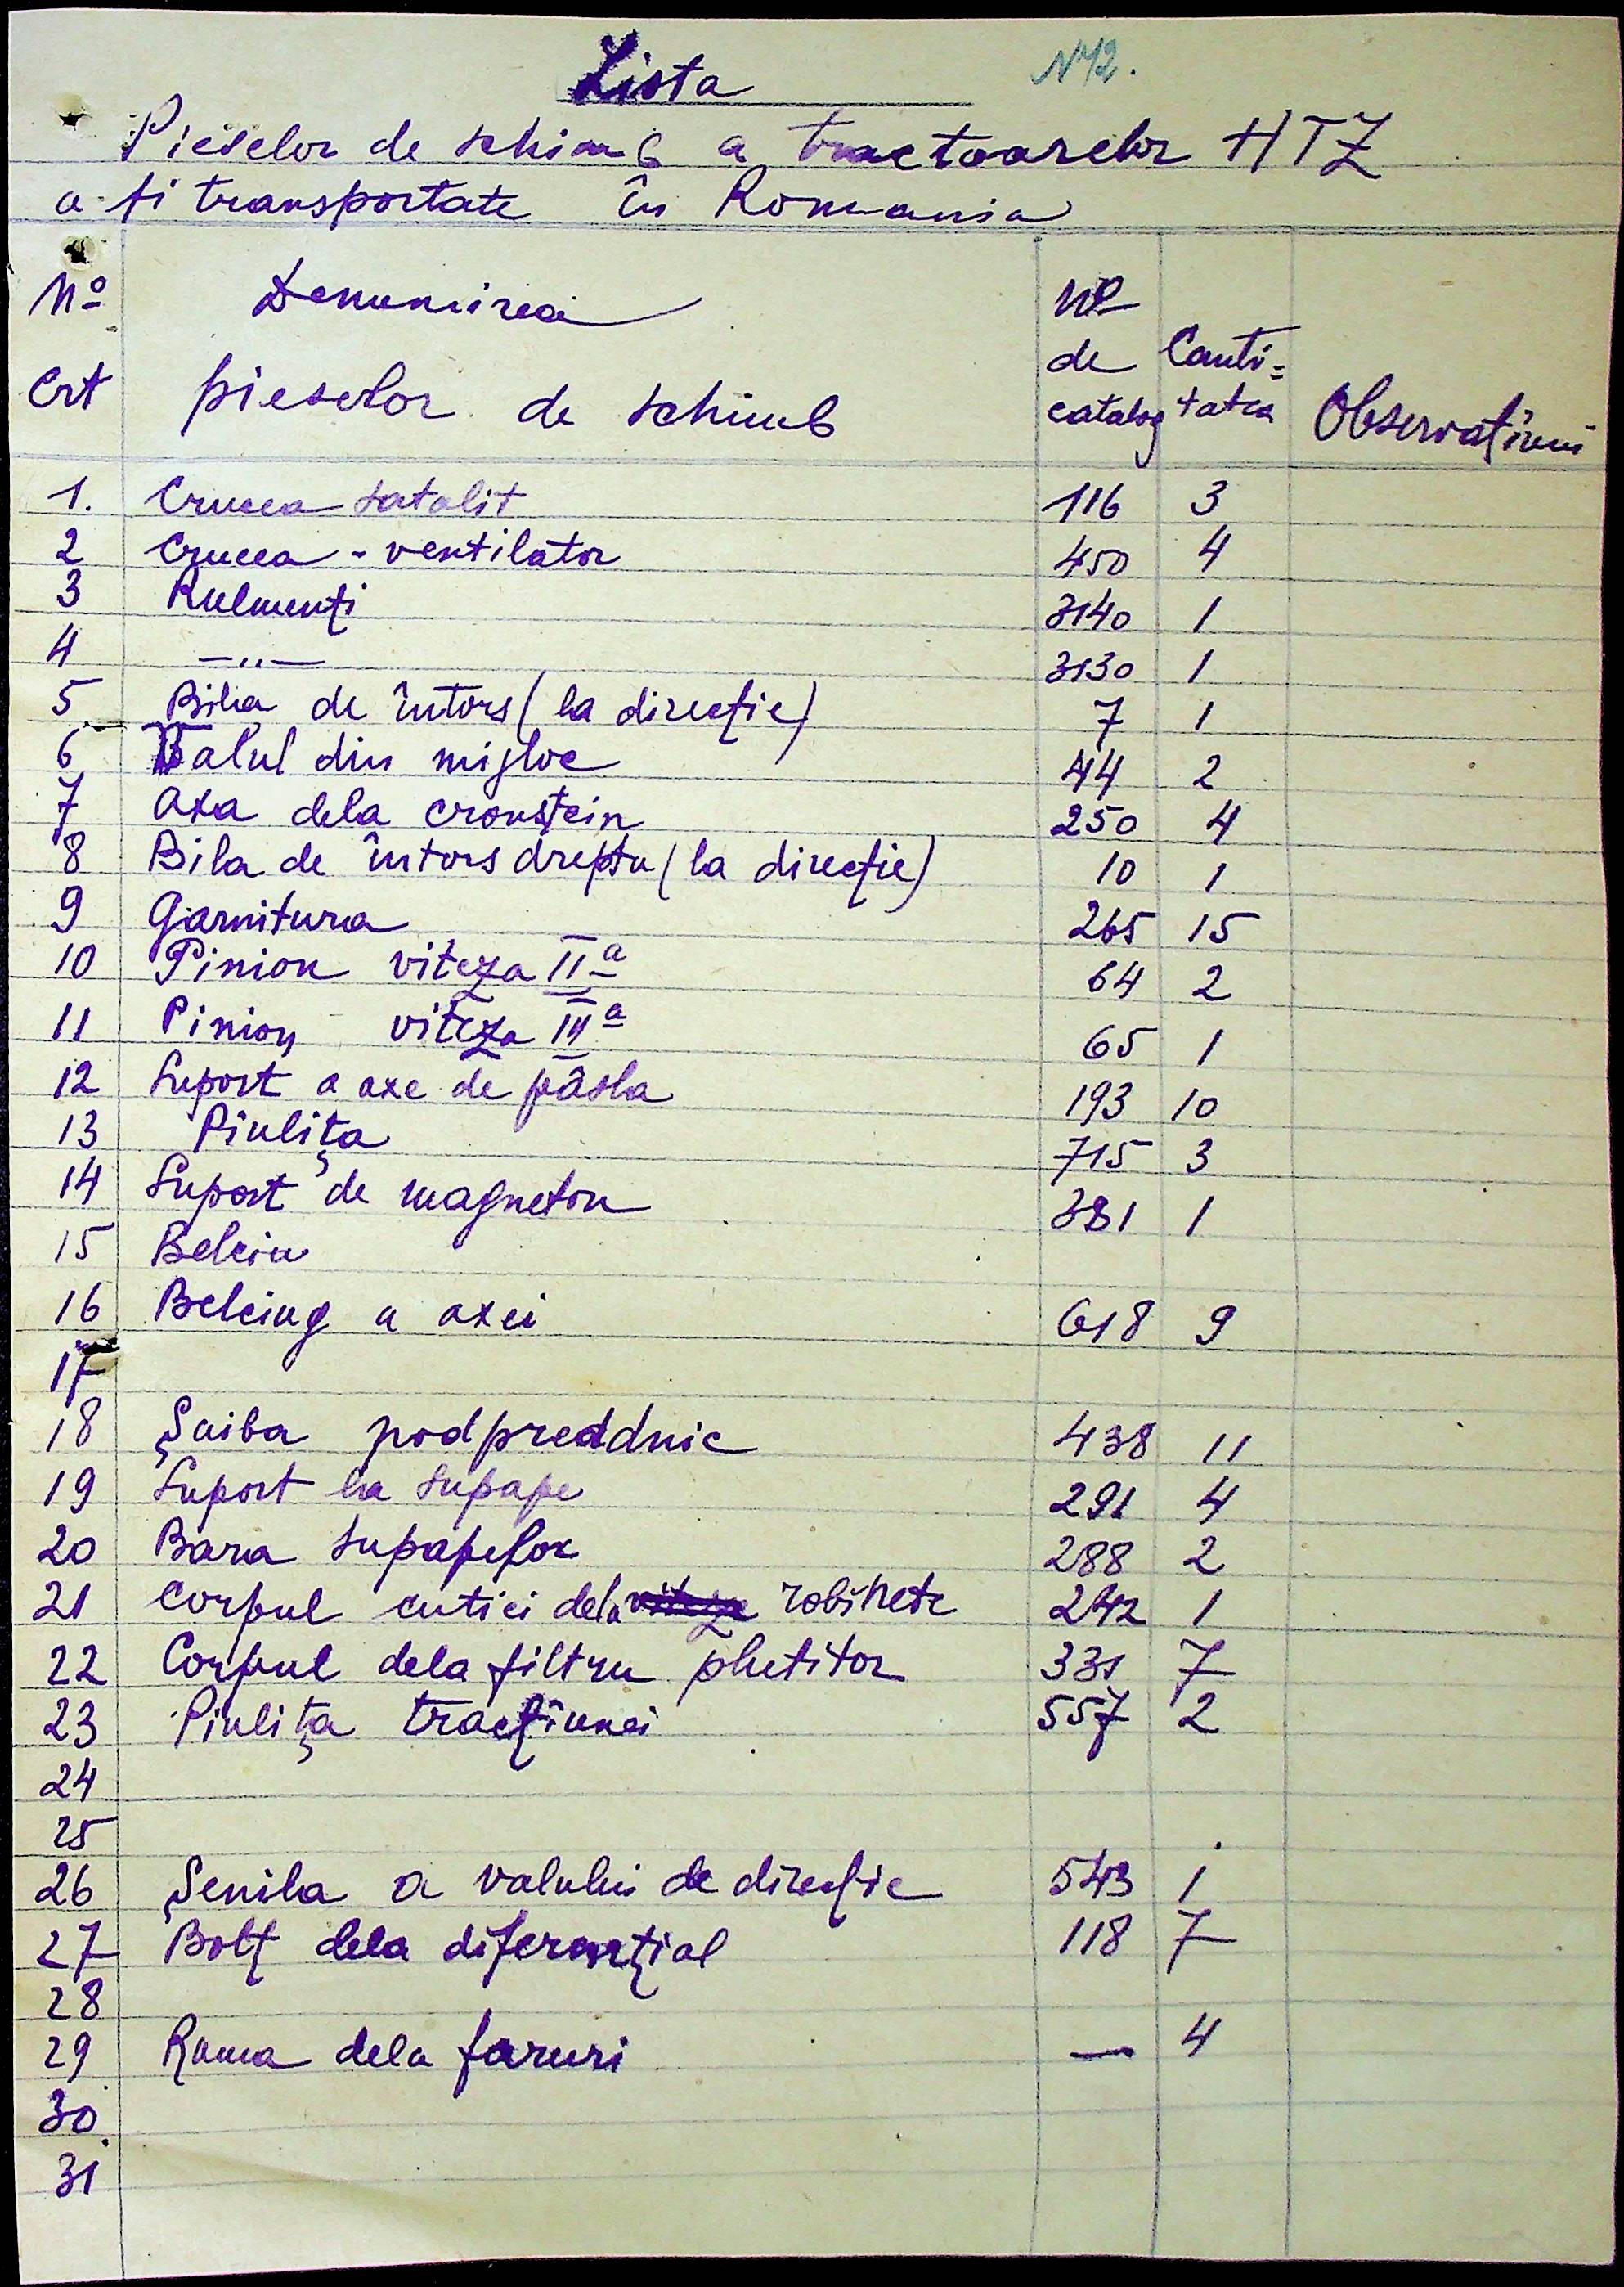 Lista № 12.
Pieselor de schimb a tractoarelor HTZ
a fi transportate în Romania
No Crt Denumirea pieselor de schimb No de catalog Canti=tatea Observațiuni
1. Crucea satalit 116 3
2 Crucea - ventilator 450 4
3 Rulmenți 3140 1
4 —"— 3130 1
5 Bila de întors (la direcție) 7 1
6 Valul din mijloc 44 2
7 Axa dela cronștein 250 4
8 Bila de întors dreptu (la direcție) 10 1
9 Garnitura 265 15
10 Pinion viteza II a 64 2
11 Pinion viteza III a 65 1
12 Suport a axe de pâsla 193 10
13 Piulița 715 3
14 Suport de magnetou 381 1
15 Belciu
16 Belciug a axei 618 9
17
18 Șaiba podpreddnic 438 11
19 Suport la supape 291 4
20 Bara supapelor 288 2
21 Corpul cutiei dela robinete 242 1
22 Corpul dela filtru plutitor 331 7
23 Piulița tracțiunei 557 2
24
25
26 Șenila a valului de direcție 543 1
27 Bolț dela diferanțial 118 7
28
29 Rama dela faruri — 4
30
31